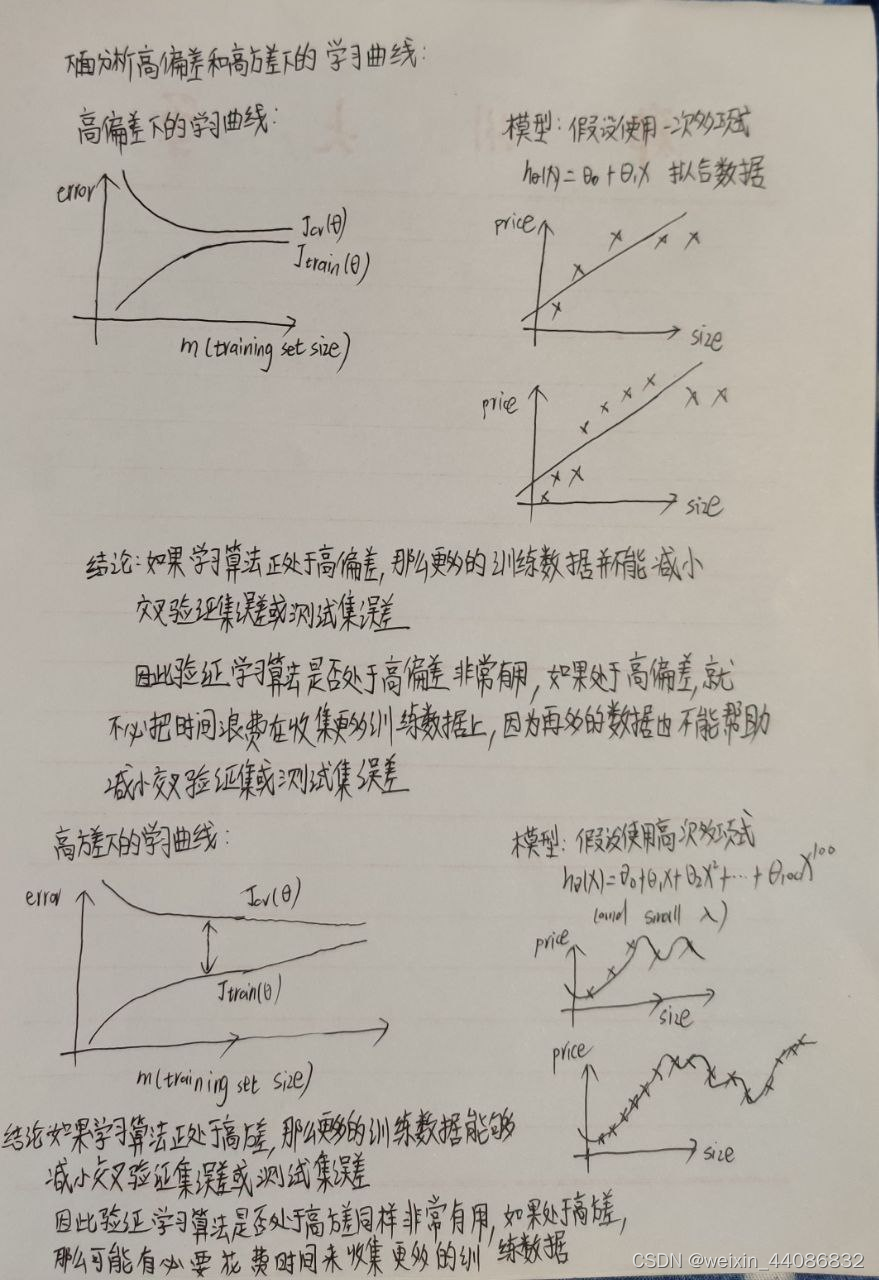 下面分析高偏差和高方差下的学习曲线:
高偏差下的学习曲线:
error
Jcv(θ)
Jtrain(θ)
m(training set size)
模型: 假设使用一次多项式
hθ(x)=θ0+θ1x 拟合数据
price
size
price
size
结论: 如果学习算法正处于高偏差, 那么更多的训练数据并不能减小
交叉验证集误差或测试集误差
因此验证学习算法是否处于高偏差非常有用, 如果处于高偏差, 就
不必把时间浪费在收集更多训练数据上, 因为再多的数据也不能帮助
减小交叉验证集或测试集误差
高方差下的学习曲线:
error
Jcv(θ)
Jtrain(θ)
m(training set size)
模型: 假设使用高次多项式
hθ(x)=θ0+θ1x+θ2x²+…+θ100x¹⁰⁰
(and small λ)
price
size
price
size
结论 如果学习算法正处于高方差, 那么更多的训练数据能够
减小交叉验证集误差或测试集误差
因此验证学习算法是否处于高方差同样非常有用, 如果处于高方差,
那么可能有必要花费时间来收集更多的训练数据
CSDN @weixin_44086832